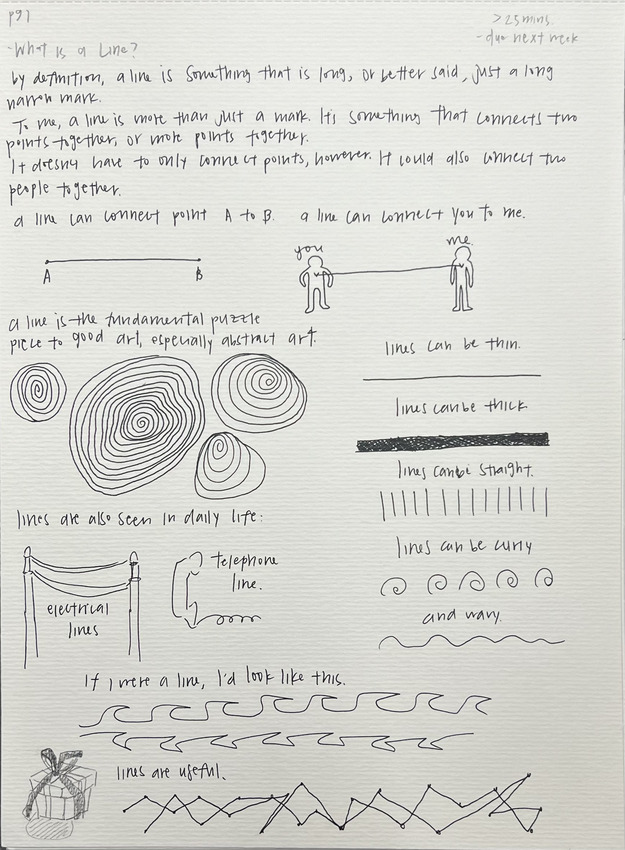 pg1
>25mins.
- due next week
-What is a Line?
by definition, a line is something that is long, or better said, just a long
narrow mark.
To me, a line is more than just a mark. Its something that connects two
points together, or more points together.
It doesnt have to only connect points, however. It could also connect two
people together.
a line can connect point A to B.
a line can connect you to me.
you
me
A
B
a line is the fundamental puzzle
piece to good art, especially abstract art.
lines can be thin.
lines can be thick
lines can be straight.
lines can be curly
and wavy.
lines are also seen in daily life:
electrical
lines
telephone
line.
If I were a line, I'd look like this.
lines are useful.